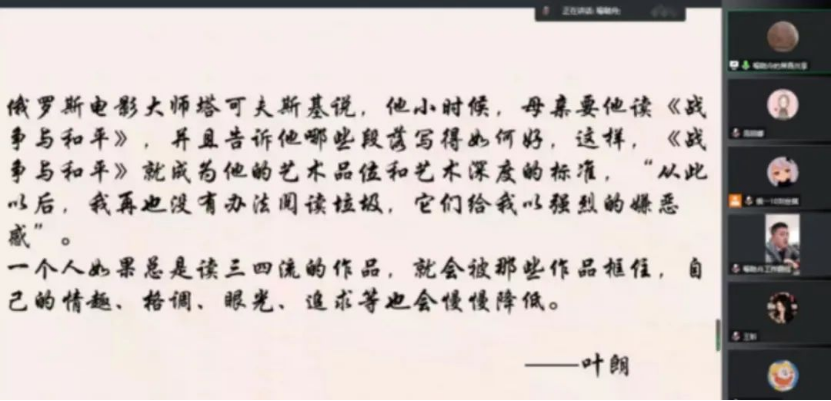 正在讲话:
俄罗斯电影大师塔可夫斯基说，他小时候，母亲要他读《战
争与和平》，并且告诉他哪些段落写得如何好，这样，《战
争与和平》就成为他的艺术品位和艺术深度的标准，“从此
以后，我再也没有办法阅读垃圾，它们给我以强烈的嫌恶
感”。
一个人如果总是读三四流的作品，就会被那些作品框住，自
己的情趣、格调、眼光、追求等也会慢慢降低。
——叶朗